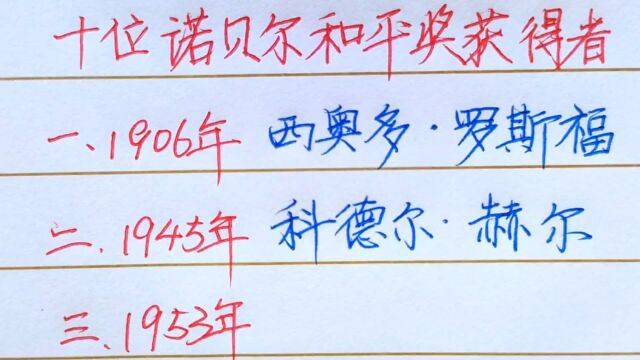 十位诺贝尔和平奖获得者
一、1906年 西奥多·罗斯福
二、1945年 科德尔·赫尔
三、1953年